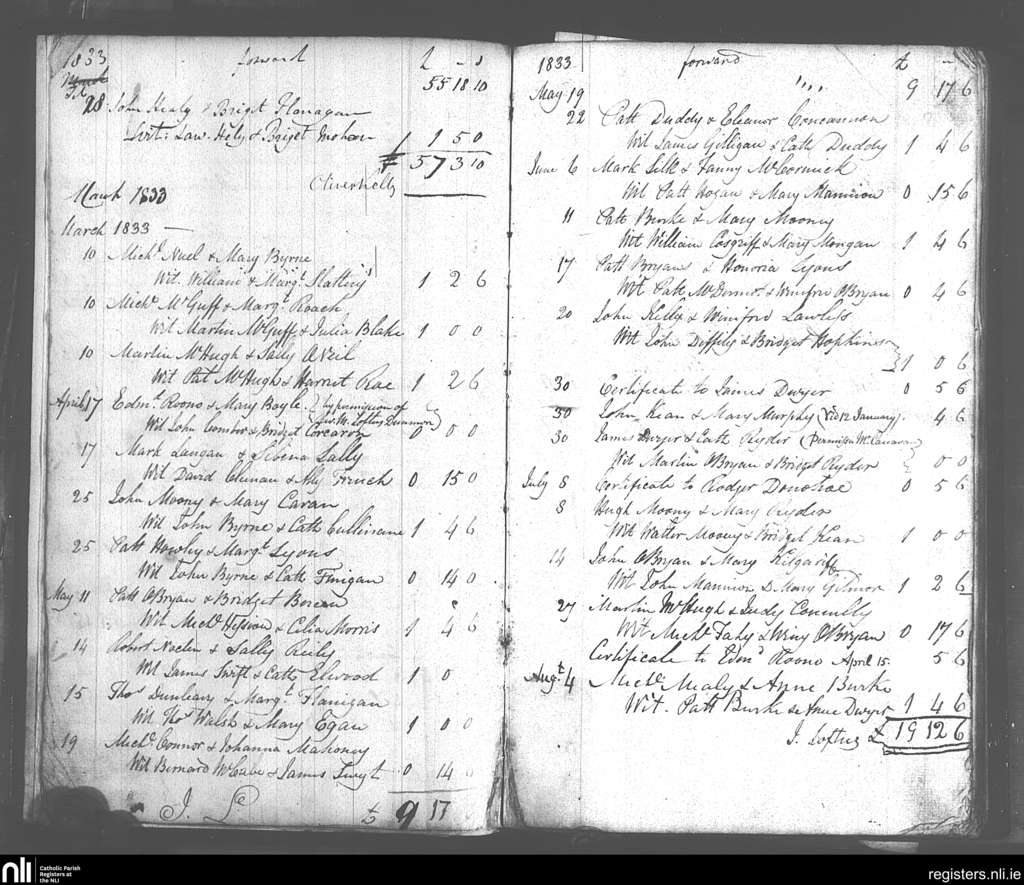 1833 forward £ - s
March 55 18 10
Feb
28 John Healy & Briget Flanagan
Law. Hely & Briget Mohan 1 5 0
£ 57 3 10
Oliver Kelly
March 1833
March 1833 —
10 Michl. Nael & Mary Byrne
Wit. William & Margt. Slattery 1 2 6
10 Michl. McGuff & Margt. Roach
Wit Martin McGuff & Julia Blake 1 0 0
10 Martin McHugh & Sally ONeil
Wit Pat McHugh & Harriet Rae 1 2 6
April 17 Edmt. Roono & Mary Boyle { by permission of
Revd. M. Loftus Dunmore }
Wit John & Bridget Corcoran 0 0 0
17 Mark Langan & Sibina Lally
Wit David Clunan & Ally French 0 15 0
25 John Moony & Mary Cavan
Wit John Byrne & Cath Cullinane 1 4 6
25 Patt Howley & Margt. Lyons
Wit John Byrne & Cath Finigan 0 14 0
May 11 Patt OBryan & Bridget
Wit Michl. & Celia Morris 1 4 6
14 Robert & Sally Reily
Wit James Swift & Cath Elwood 1 0
15 Thos. Dunleavy & Margt. Flanigan
Wit Thos. Walsh & Mary Egan 1 0 0
19 Michl. Connor & Johanna Mahoney
Wit Bernard McCabe & James 0 14 0
J. L £ 9 17
1833 forward £ -
May 19 " " 9 17 6
22 Patt Duddy & Eleanor Concannon
Wit James Gilligan & Cath Duddy 1 4 6
June 6 Mark Silk & Fanny McCormick
Wit Patt Hogan & Mary Mannion 0 15 6
11 Patt Burke & Mary Mooney
Wit William Cosgriff & Mary Mongan 1 4 6
17 Patt Bryan & Honoria Lyons
Wit Patt McDermot & Winifrid OBryan 0 4 6
20 John Kelly & Winifrid Lawless
Wit John Diffily & Bridget Hopkins 1 0 6
30 Certificate to James Dwyer 0 5 6
30 John Kean & Mary Murphy (Vid 12 January) 4 6
30 James Dwyer & Cath Ryder (Permission)
Wit Martin OBryan & Bridget Ryder 0 0
July 8 Certificate to Rodger Donohoe 0 5 6
8 Hugh Moony & Mary Ryder
Wit Walter Moony & Bridget Kean 1 0 0
14 John OBryan & Mary Kilgariff
Wit John Mannion & Mary Gilmor 1 2 6
27 Martin McHugh & Judy Connelly
Wit Michl. Fahy & Winy OBryan 0 17 6
Certificate to Edmd. Roono April 15. 5 6
Augt. 4 Michl. Mealy & Anne Burke
Wit. Patt Burke & Anne Dwyer 1 4 6
J. Loftus £ 19 12 6
nli Catholic Parish
Registers at
the NLI
registers.nli.ie